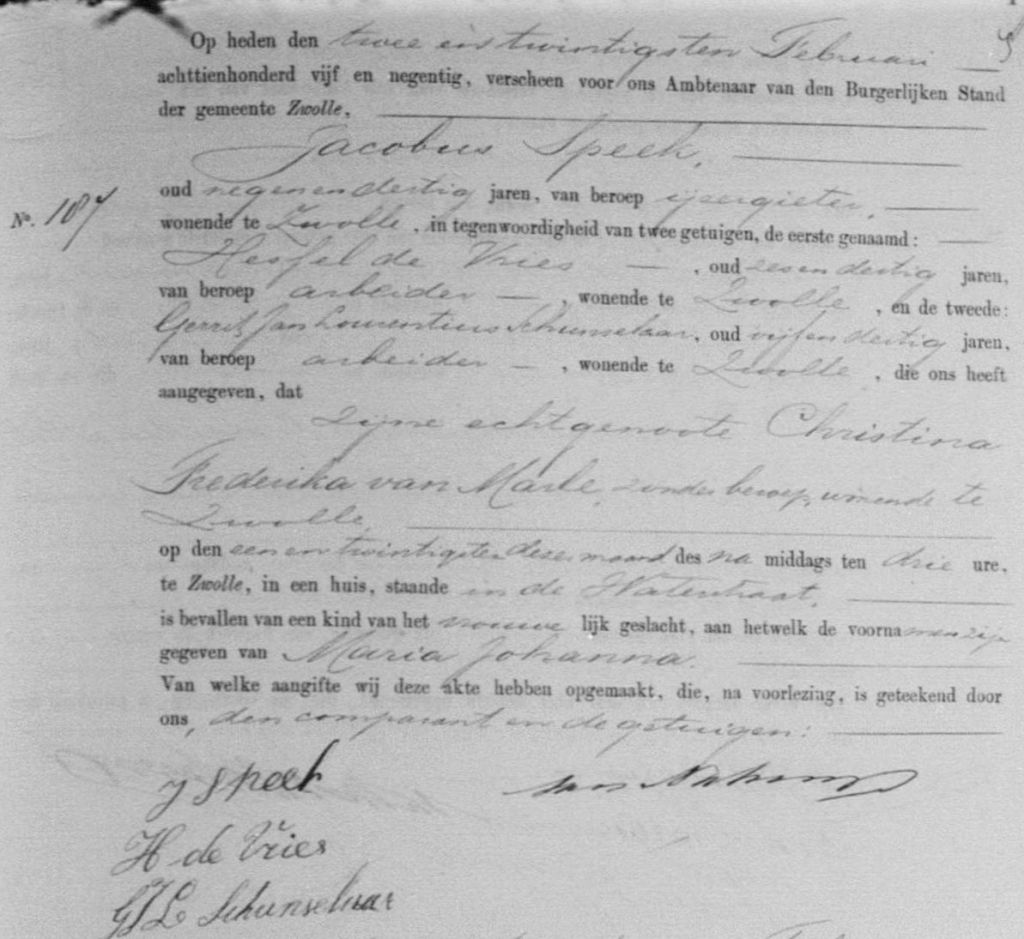 Op heden den twee en twintigsten Februari
achttienhonderd vijf en negentig, verscheen voor ons Ambtenaar van den Burgerlijken Stand
der gemeente Zwolle,
Jacobus Speek,
oud negen en dertig jaren, van beroep ijzergieter,
No. 187
wonende te Zwolle, in tegenwoordigheid van twee getuigen, de eerste genaamd:
Hessel de Vries, oud zes en dertig jaren,
van beroep arbeider, wonende te Zwolle, en de tweede:
Gerrit Jan Lourentius Schunselaar, oud vijf en dertig jaren,
van beroep arbeider, wonende te Zwolle, die ons heeft
aangegeven, dat
zijne echtgenoote Christina
Frederika van Marle, zonder beroep, wonende te
Zwolle,
op den een en twintigsten dezer maand des na middags ten drie ure,
te Zwolle, in een huis, staande in de Waterstraat,
is bevallen van een kind van het vrouwelijk geslacht, aan hetwelk de voornamen zijn
gegeven van Maria Johanna.
Van welke aangifte wij deze akte hebben opgemaakt, die, na voorlezing, is geteekend door
ons, den comparant en de getuigen:
J Speek
H de Vries
GJL Schunselaar